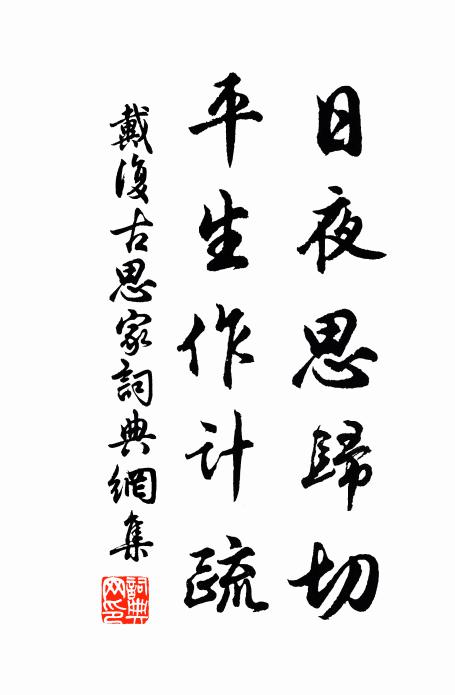 日夜思歸切
平生作計疏
戴復古思家詞典網集
詞典網印